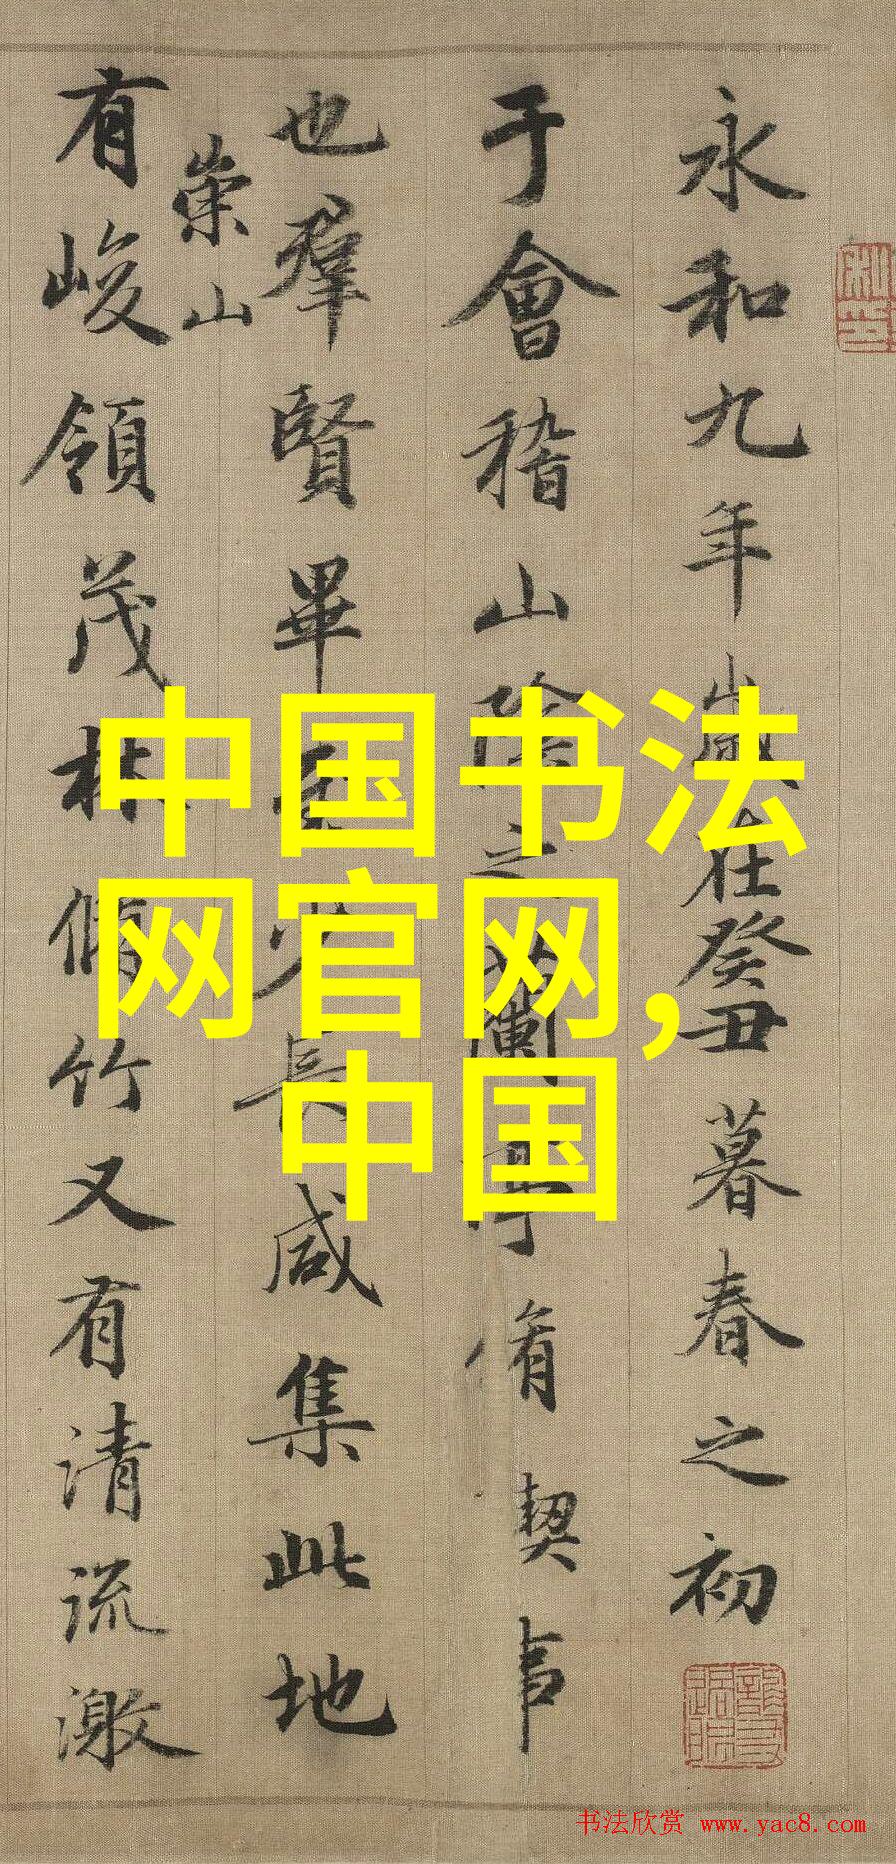 永和九年歲在癸丑暮春之初
于會稽山陰之蘭亭脩契事
也羣賢畢至少長咸集此地
崇山
有峻領茂林脩竹又有清流激
中国书法
网官网，
中国
书法欣赏 www.yac8.com